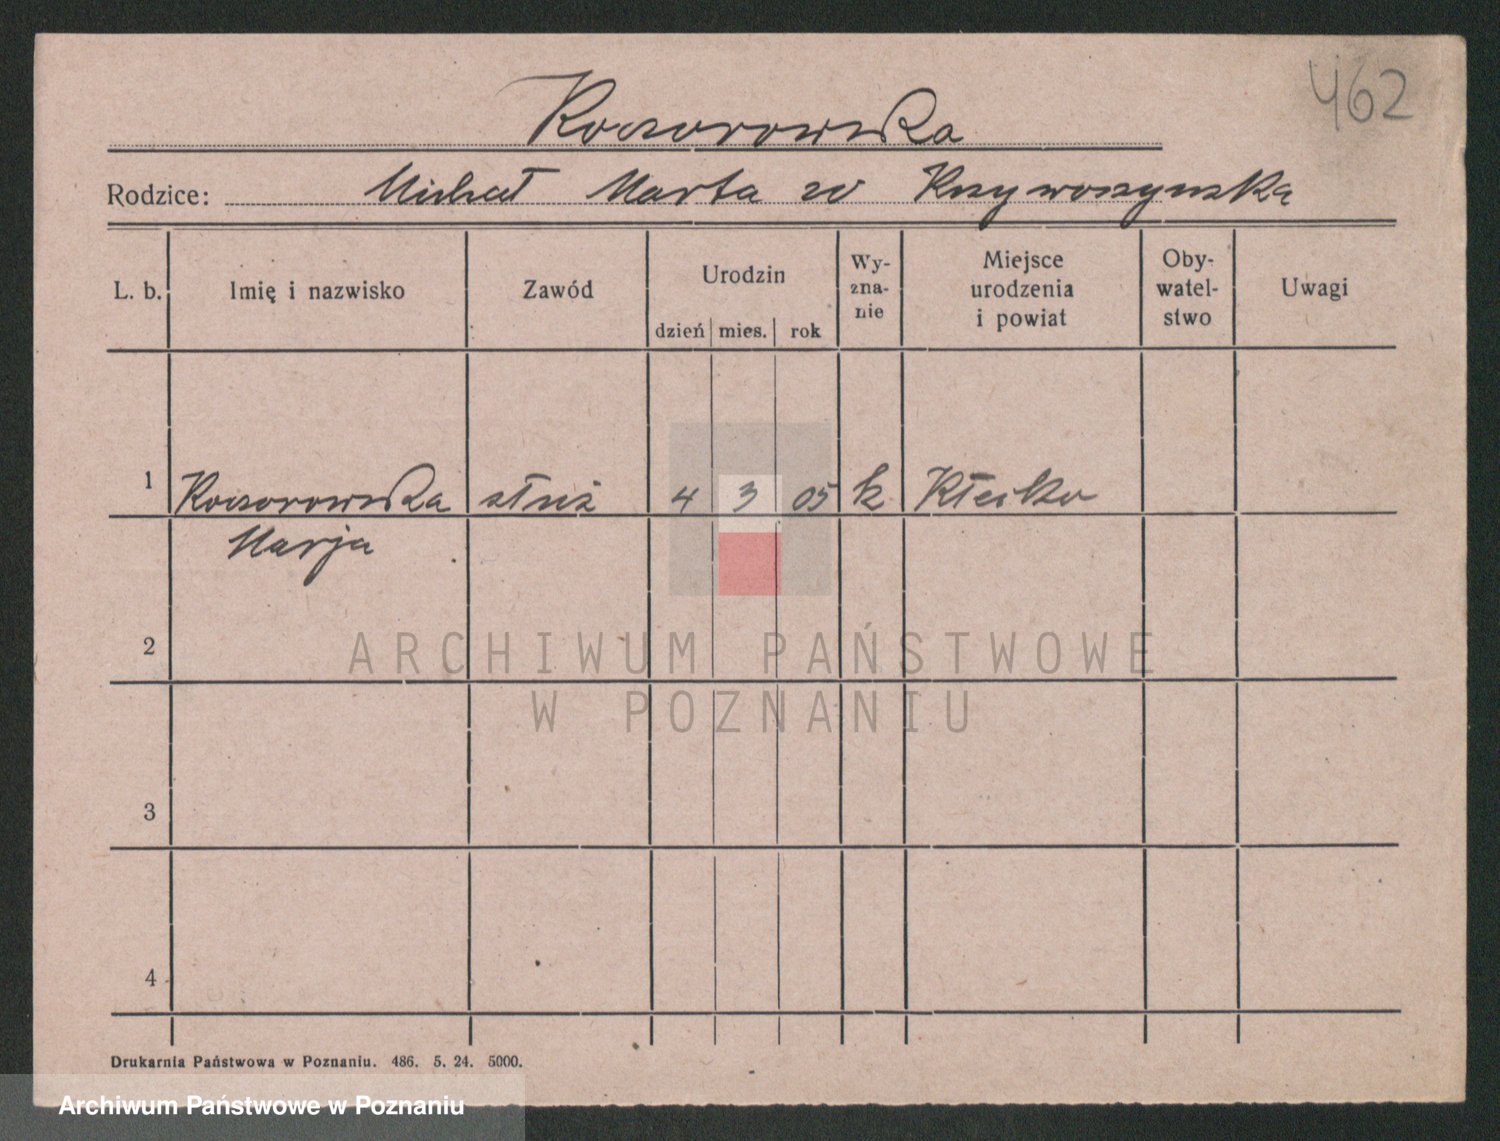 462
Koczorowska
Rodzice: Michał Marta zd Krzywoszynska
L. b. Imię i nazwisko Zawód Urodzin dzień mies. rok Wy-zna-nie Miejsce urodzenia i powiat Oby-watel-stwo Uwagi
1 Koczorowska służ 4 3 05 k Kłecko
Marja
2
ARCHIWUM PAŃSTWOWE
W POZNANIU
3
4
Drukarnia Państwowa w Poznaniu. 486. 5. 24. 5000.
Archiwum Państwowe w Poznaniu